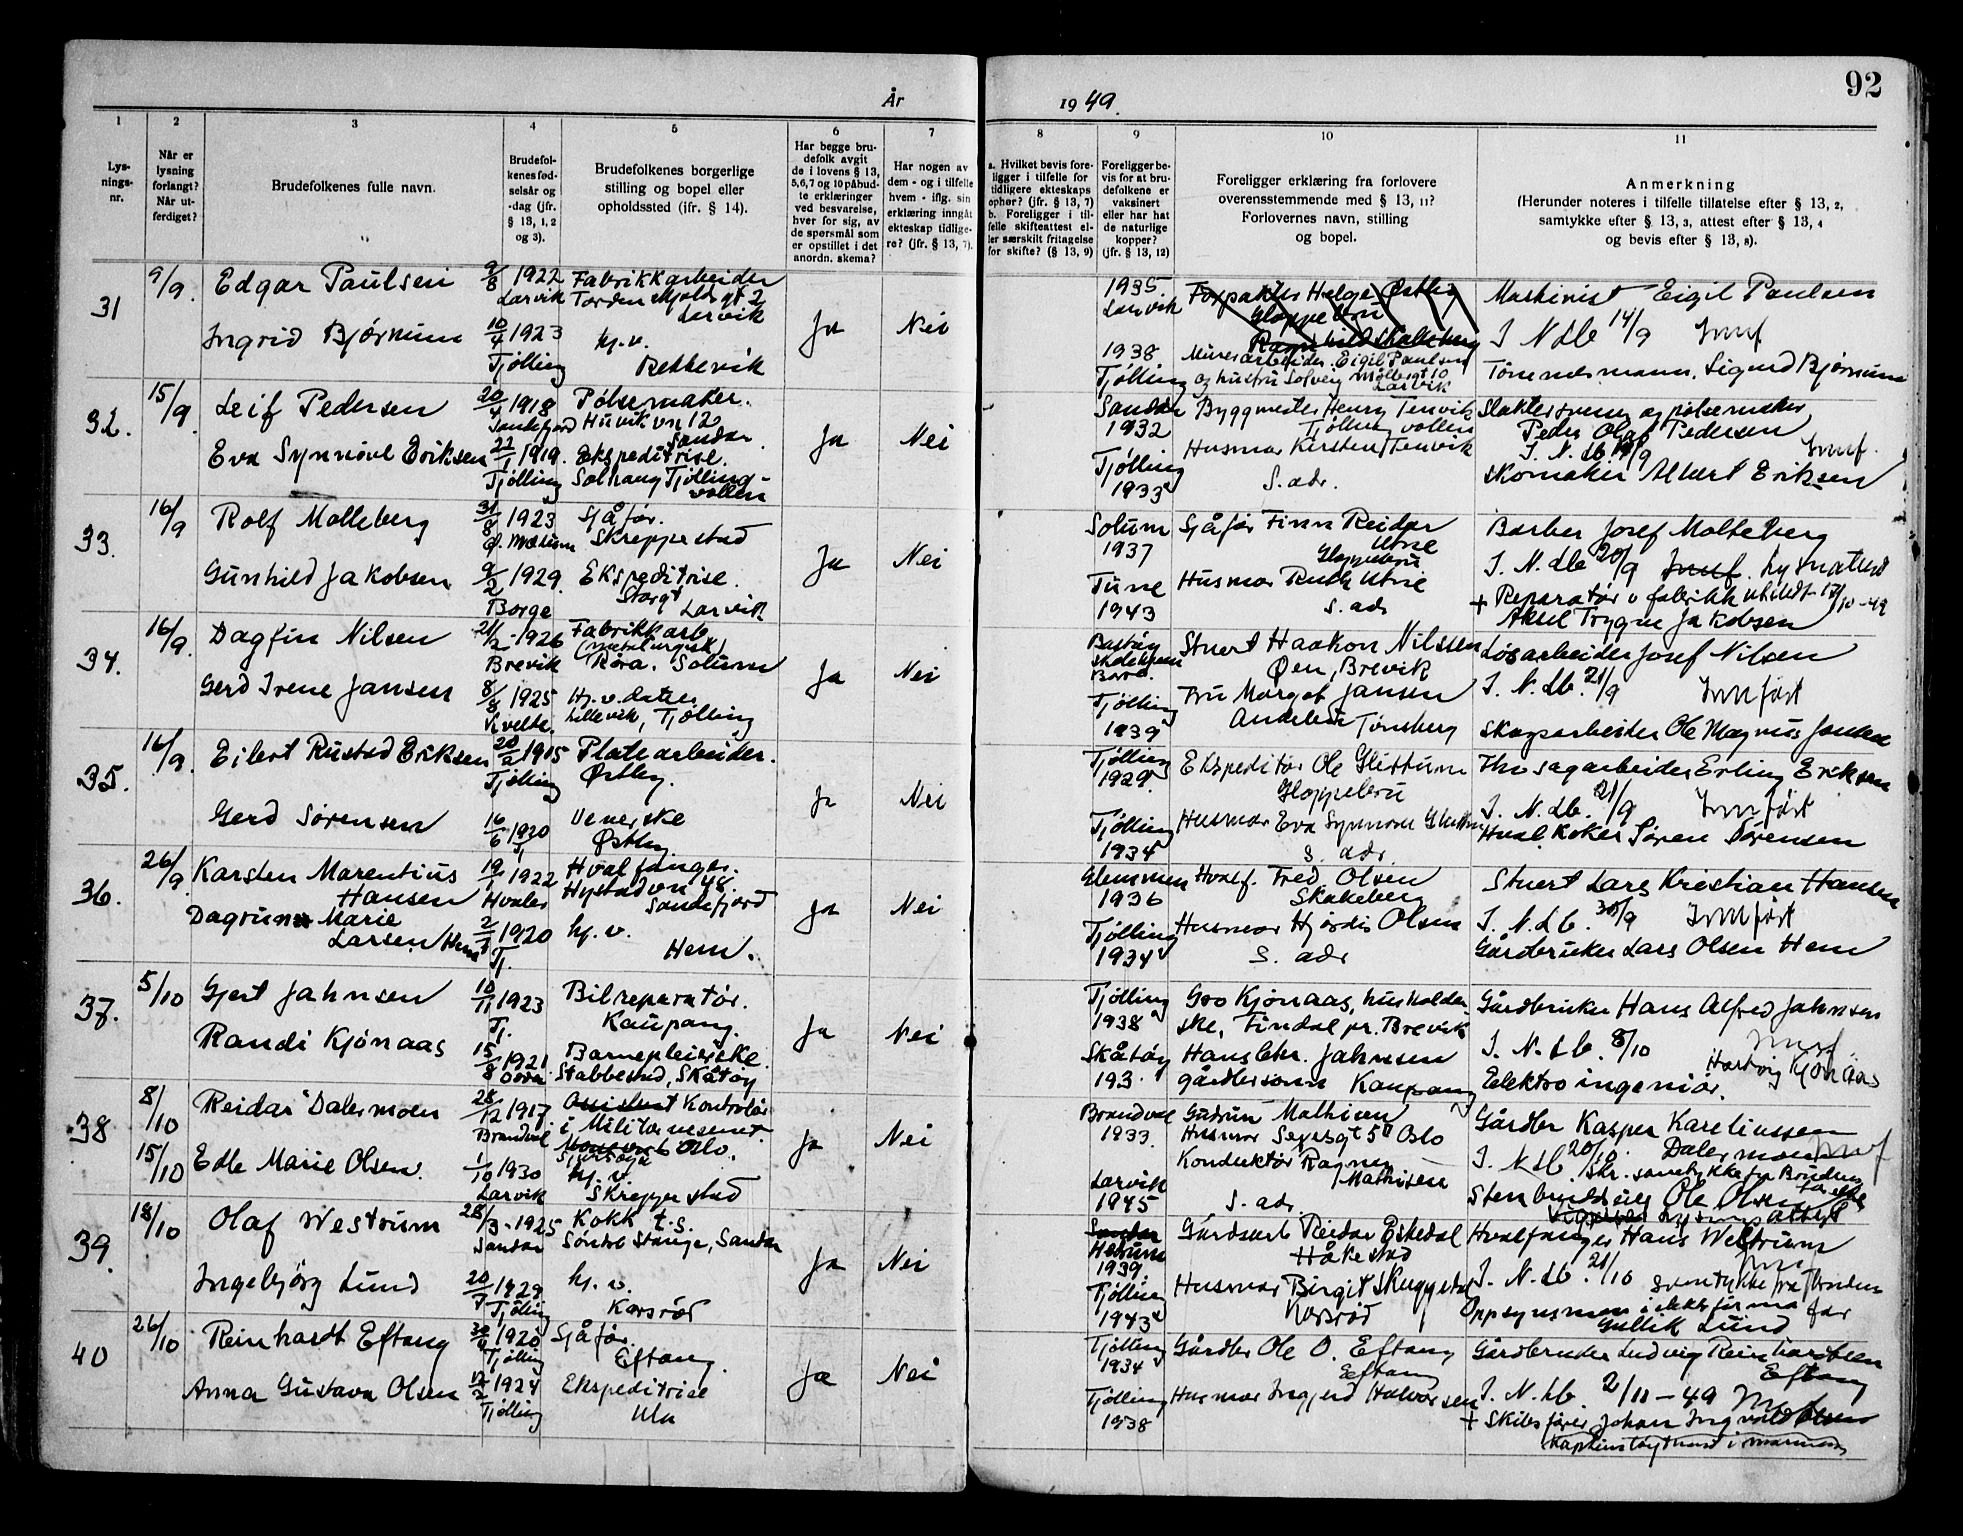 År
19 49.
92
1
2
3
4
5
6
7
8
9
10
11
Lys-
nings-
nr.
Når er
lysning
forlangt?
Når ut-
ferdiget?
Brudefolkenes fulle navn.
Brudefol-
kenes fød-
selsår og
-dag (jfr.
§ 13, 1, 2
og 3).
Brudefolkenes borgerlige
stilling og bopel eller
opholdssted (jfr. § 14).
Har begge bru-
defolk avgit
de i lovens § 13,
5,6,7 og 10 påbud-
te erklæringer
ved besvarelse,
hver for sig, av
de spørsmål som
er opstillet i det
anordn. skema?
Har nogen av
dem - og i tilfelle
hvem - iflg. sin
erklæring inngått
ekteskap tidlige-
re? (jfr. § 13, 7).
a. Hvilket bevis fore-
ligger i tilfelle for
tidligere ekteskaps
ophør? (jfr. § 13, 7)
b. Foreligger i til-
felle skifteattest el-
ler særskilt fritagelse
for skifte? (§ 13, 9)
Foreligger be-
vis for at bru-
defolkene er
vaksinert
eller har hat
de naturlige
kopper?
(jfr. § 13, 12)
Foreligger erklæring fra forlovere
overensstemmende med § 13, 11?
Forlovernes navn, stilling
og bopel.
Anmerkning
(Herunder noteres i tilfelle tillatelse efter § 13, 2,
samtykke efter § 13, 3, attest efter § 13, 4
og bevis efter § 13, 8).
31
9/9.
Edgar Paulsen
9/8 1922
Larvik
Fabrikkarbeider
Tordenskjolds gt 2
Larvik
Ingrid Bjørnum
10/4 1923
Tjølling
hj.v.
Rekkevik
Ja
Nei
1935
Larvik
1938
Tjølling
Helge Østby
Gloppebru
Ragnhild Skalleberg
Murerarbeider Eigil Paulsen
og hustru Solveig Møllergt 10
Larvik
Maskinist Eigil Paulsen
I N Lb 14/9 Innf
Tømmermann. Sigurd Bjørnum
32.
15/9
Leif Pedersen
20/4 1918
Sandefjord
Pølsemaker.
Huvik vn 12
Sandar
Eva Synnøve Eriksen
22/1 1919.
Tjølling
Ekspeditrise.
Solhaug Tjølling-
vollen
Ja
Nei
Sandar
1932
Tjølling
1933
Byggmester Henry Tenvik
Tjølling vollen
Husmor Kirsten Tenvik
S. adr.
Slaktersvenn og pølsemaker
Peder Olaf Pedersen
I. N. Lb. 19/9 Innf.
Skomaker Albert Eriksen
33.
16/9
Rolf Molteberg
31/8 1923
Sjåfør.
Skreppestad
Gunhild Jakobsen
9/2 1929.
Borge
Ekspeditrise.
Storgt Larvik
Ja
Nei
Solum
1937
Tune
1943
Sjåfør Finn Reidar
Utne
Gloppebru
Husmor Ruth Utne
S. adr
Barber Josef Molteberg
I. N. Lb 20/9 Innf. Lysnatest
+ Reparatør v fabrikk utstedt 17/10-49
Aksel Trygve Jakobsen
34.
16/9.
Dagfin Nilsen
21/2 - 1926
Brevik
Fabrikkarb
(metalurgisk)
Røra. Solum
Gerd Irene Jansen
8/8 1925
Kvelde.
Hj. v. datter
Lillevik, Tjølling
Ja
Nei
Bastøy
skolehjem
Borre.
Tjølling
1939
Stuert Haakon Nilssen
Øen, Brevik
Fru Margot Jansen
Andebu Tønsberg
Løsarbeider Josef Nilsen
I. N. Lb. 21/9 Innført
Skogsarbeider Ole Magnus Jansen
35.
16/9
Eilert Rustad Eriksen
20/2 1915
Tjølling
Platearbeider.
Østby.
Gerd Sørensen
16/6 1920
Veverske
Østby.
Ja
Nei
Tjølling
1929.
Tjølling
1934
Ekspeditør Ole Glittum
Gloppebru
Husmor Eva Synnøve Glittum
S. adr.
Fhv sagarbeider Erling Eriksen
I. N. Lb. 21/9 Innført
Hval.koker Søren Sørensen
36.
26/9
Karsten Marentius
Hansen
19/1 1922
Hvaler
Hvalfanger.
Hystadvn 48.
Sandefjord
Dagrun Marie
Larsen Hem
2/3 1920
Tj.
hj. v.
Hem.
Ja
Nei
Glemmen
1936
Tjølling
1934
Hvalf. Fred Olsen
Skakeberg
Husmor Hjørdis Olsen
S. adr
Stuert Lars Kristian Hansen
I. N. Lb. 30/9 Innført
Gårdbruker Lars Olsen Hem
37.
5/10
Gjert Jahnsen
10/11 1923
Tj.
Bilreparatør.
Kaupang.
Randi Kjønaas
15/8 1921
Barnepleierske.
Stabbestad, Skåtøy
Ja
Nei
Tjølling
1938
Skåtøy
193
Gro Kjønaas, husholder-
ske, Findal pr. Brevik
Hans Chr. Jahnsen
gårdbr sønn Kaupang
Gårdbruker Hans Alfred Jahnsen
I. N. Lb. 8/10 Innf.
Hartvig Kjønaas
Elektro ingeniør.
38
8/10
15/10
Reidar Dalermoen
28/12 1917.
Brandval
Assistent Kontrolør
i Militærvesenet.
Oslo.
Edle Marie Olsen.
1/10 1930
Larvik
hj. v.
Skreppestad
Ja
Nei
Brandval
1933.
Larvik
1945
Gudrun Mathisen
Husmor Seyrsgt 5 Oslo
Konduktør Ragnar
Mathisen
S. adr.
Gårdbr Kasper Kareliussen
Dalermoen
I. N Lb 20/10. Innf
Skr. samtykke fra Brudens
foreldre
Ole Olsen
attest
39.
18/10
Olaf Westrum
28/3 - 1925
Sandar
Kokk t.s.
Søndre Stange, Sandar
Ingebjørg Lund
20/7 1929
Tjølling
hj. v.
Korsrød
Ja
Nei
Sandar
Hedrum
1939
Tjølling
1943
Gårdsarb Reidar Eskedal
Håkestad
Husmor Birgit Skuggedal
Korsrød
Hvalfanger Hans Westrum
I. N. Lb. 21/10 samtykke fra Brudens
far
Oppsynsmann i elektrfirma
Gullik Lund
40
26/10
Reinhardt Eftang
1920
Tjølling
Sjåfør.
Eftang.
Anna Gustava Olsen
12/2 1924
Tjølling
Ekspeditrise
Ula
Ja
Nei
Tjølling
1934
Tjølling
1938
Gårdbr Ole O. Eftang
Eftang
Husmor Ingjerd Halvorsen
Gårdbruker Ludvig Reinhardtsen
Eftang
I. N. Lb. 2/11 - 49 Innf
+ Skibsfører Johan Ingvald Olsen